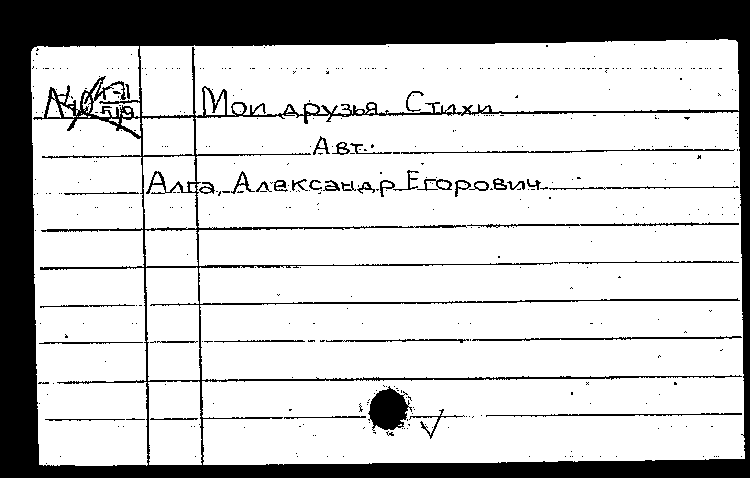 Мои друзья. Стихи
Авт.:
Алга, Александр Егорович